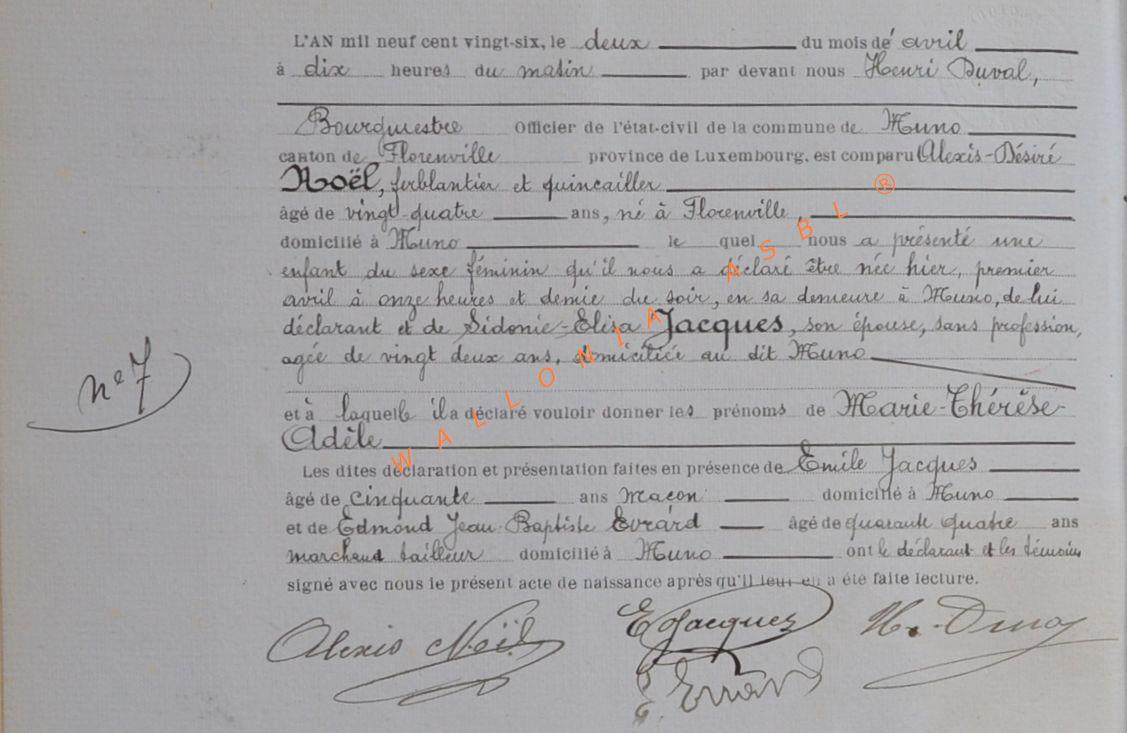 L'AN mil neuf cent vingt-six, le deux du mois de avril
à dix heures du matin par devant nous Henri Duval,
Bourgmestre Officier de l'état-civil de la commune de Muno
canton de Florenville province de Luxembourg, est comparu Alexis-Désiré
Noël, ferblantier et quincailler
âgé de vingt-quatre ans, né à Florenville,
domicilié à Muno le quel nous a présenté une
enfant du sexe féminin qu'il nous a déclaré être née hier, premier
avril à onze heures et demie du soir, en sa demeure à Muno, de lui
déclarant et de Sidonie-Elisa Jacques, son épouse, sans profession,
agée de vingt deux ans, domiciliée au dit Muno
n° 7
et à laquelle il a déclaré vouloir donner les prénoms de Marie-Thérèse-
Adèle
Les dites déclaration et présentation faites en présence de Emile Jacques
âgé de cinquante ans maçon domicilié à Muno
et de Edmond Jean-Baptiste Evrard âgé de quarante quatre ans
marchand tailleur domicilié à Muno ont le déclarant et les témoins
signé avec nous le présent acte de naissance après qu'il leur en a été faite lecture.
Alexis Noël E Jacques H. Duval
E. Evrard
WALLONIA SBL ®